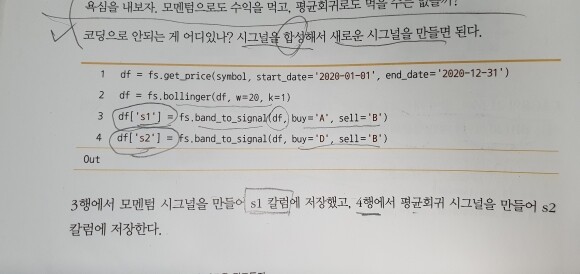 욕심을 내보자. 모멘텀으로도 수익을 먹고, 평균회귀로도 먹을 수는 없을까?
코딩으로 안되는 게 어디있나? 시그널을 합성해서 새로운 시그널을 만들면 된다.
1 df = fs.get_price(symbol, start_date='2020-01-01', end_date='2020-12-31')
2 df = fs.bollinger(df, w=20, k=1)
3 df['s1'] = fs.band_to_signal(df, buy='A', sell='B')
4 df['s2'] = fs.band_to_signal(df, buy='D', sell='B')
Out
3행에서 모멘텀 시그널을 만들어 s1 칼럼에 저장했고, 4행에서 평균회귀 시그널을 만들어 s2
칼럼에 저장한다.